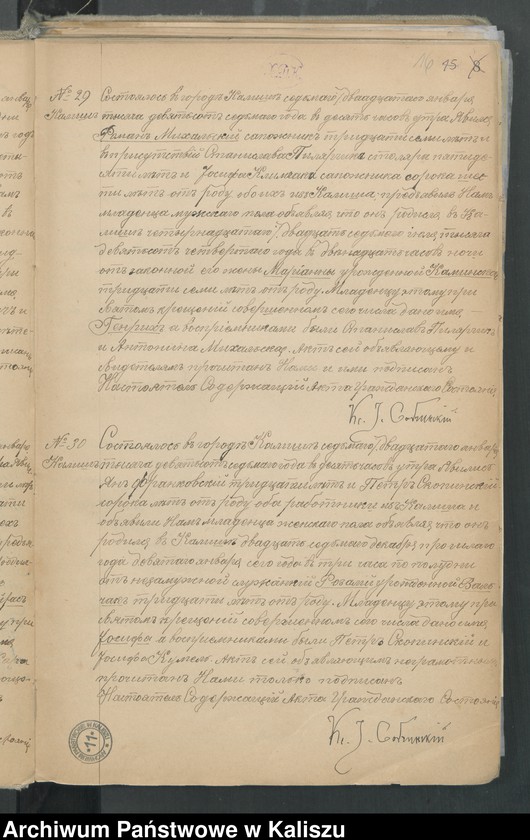 16 45 8
№ 29 Состоялось въ городѣ Калишѣ седьмаго /двадцатаго/ января
Калишъ тысяча девятьсотъ седьмаго года въ десять часовъ утра. Явился
Романъ Михальскій сапожникъ тридцати семи лѣтъ и
въ присутствіи Станислава столяра пятиде-
сяти лѣтъ и Іосифа сапожника сорока шес
ти лѣтъ отъ роду обоихъ изъ Калиша, предъявилъ Намъ
младенца мужскаго пола объявляя, что онъ родился въ Ка-
лишѣ четырнадцатаго /двадцать седьмаго іюля, тысяча
девятьсотъ четвертаго года въ двѣнадцать часовъ ночи
отъ законной его жены Маріанны урожденной
тридцати семи лѣтъ отъ роду. Младенцу этому при
Святомъ крещеніи совершенномъ сего числа дано имя
Генрихъ а воспріемниками были Станиславъ
и Антонина Михальска. Актъ сей объявляющему и
Свидѣтелямъ прочитанъ Нами и ими подписанъ
Настоятель Содержащій Акты Гражданскаго Состоянія
Кс. І.
№ 30 Состоялось въ городѣ Калишѣ седьмаго /двадцатаго января
Калишъ тысяча девятьсотъ седьмаго года въ десять часовъ утра. Явились
Янъ Франковскій тридцати лѣтъ и Петръ Скопинскій
сорока лѣтъ отъ роду оба работники изъ Калиша и
объявили Намъ младенца женскаго пола объявляя, что онъ
родился въ Калишѣ двадцать седьмаго декабря прошлаго
года девятаго января сего года въ три часа по полудни
отъ незамужной служанки Розаліи урожденной
тридцати лѣтъ отъ роду. Младенцу этому при
святомъ крещеніи совершенномъ сего числа дано имя
Іосифа а воспріемниками были Петръ Скопинскій и
Іосифа Актъ сей объявляющимъ неграмотнымъ
прочитанъ Нами только подписанъ
Настоятель Содержащій Акты Гражданскаго Состоянія
Кс. І.
11
Archiwum Państwowe w Kaliszu